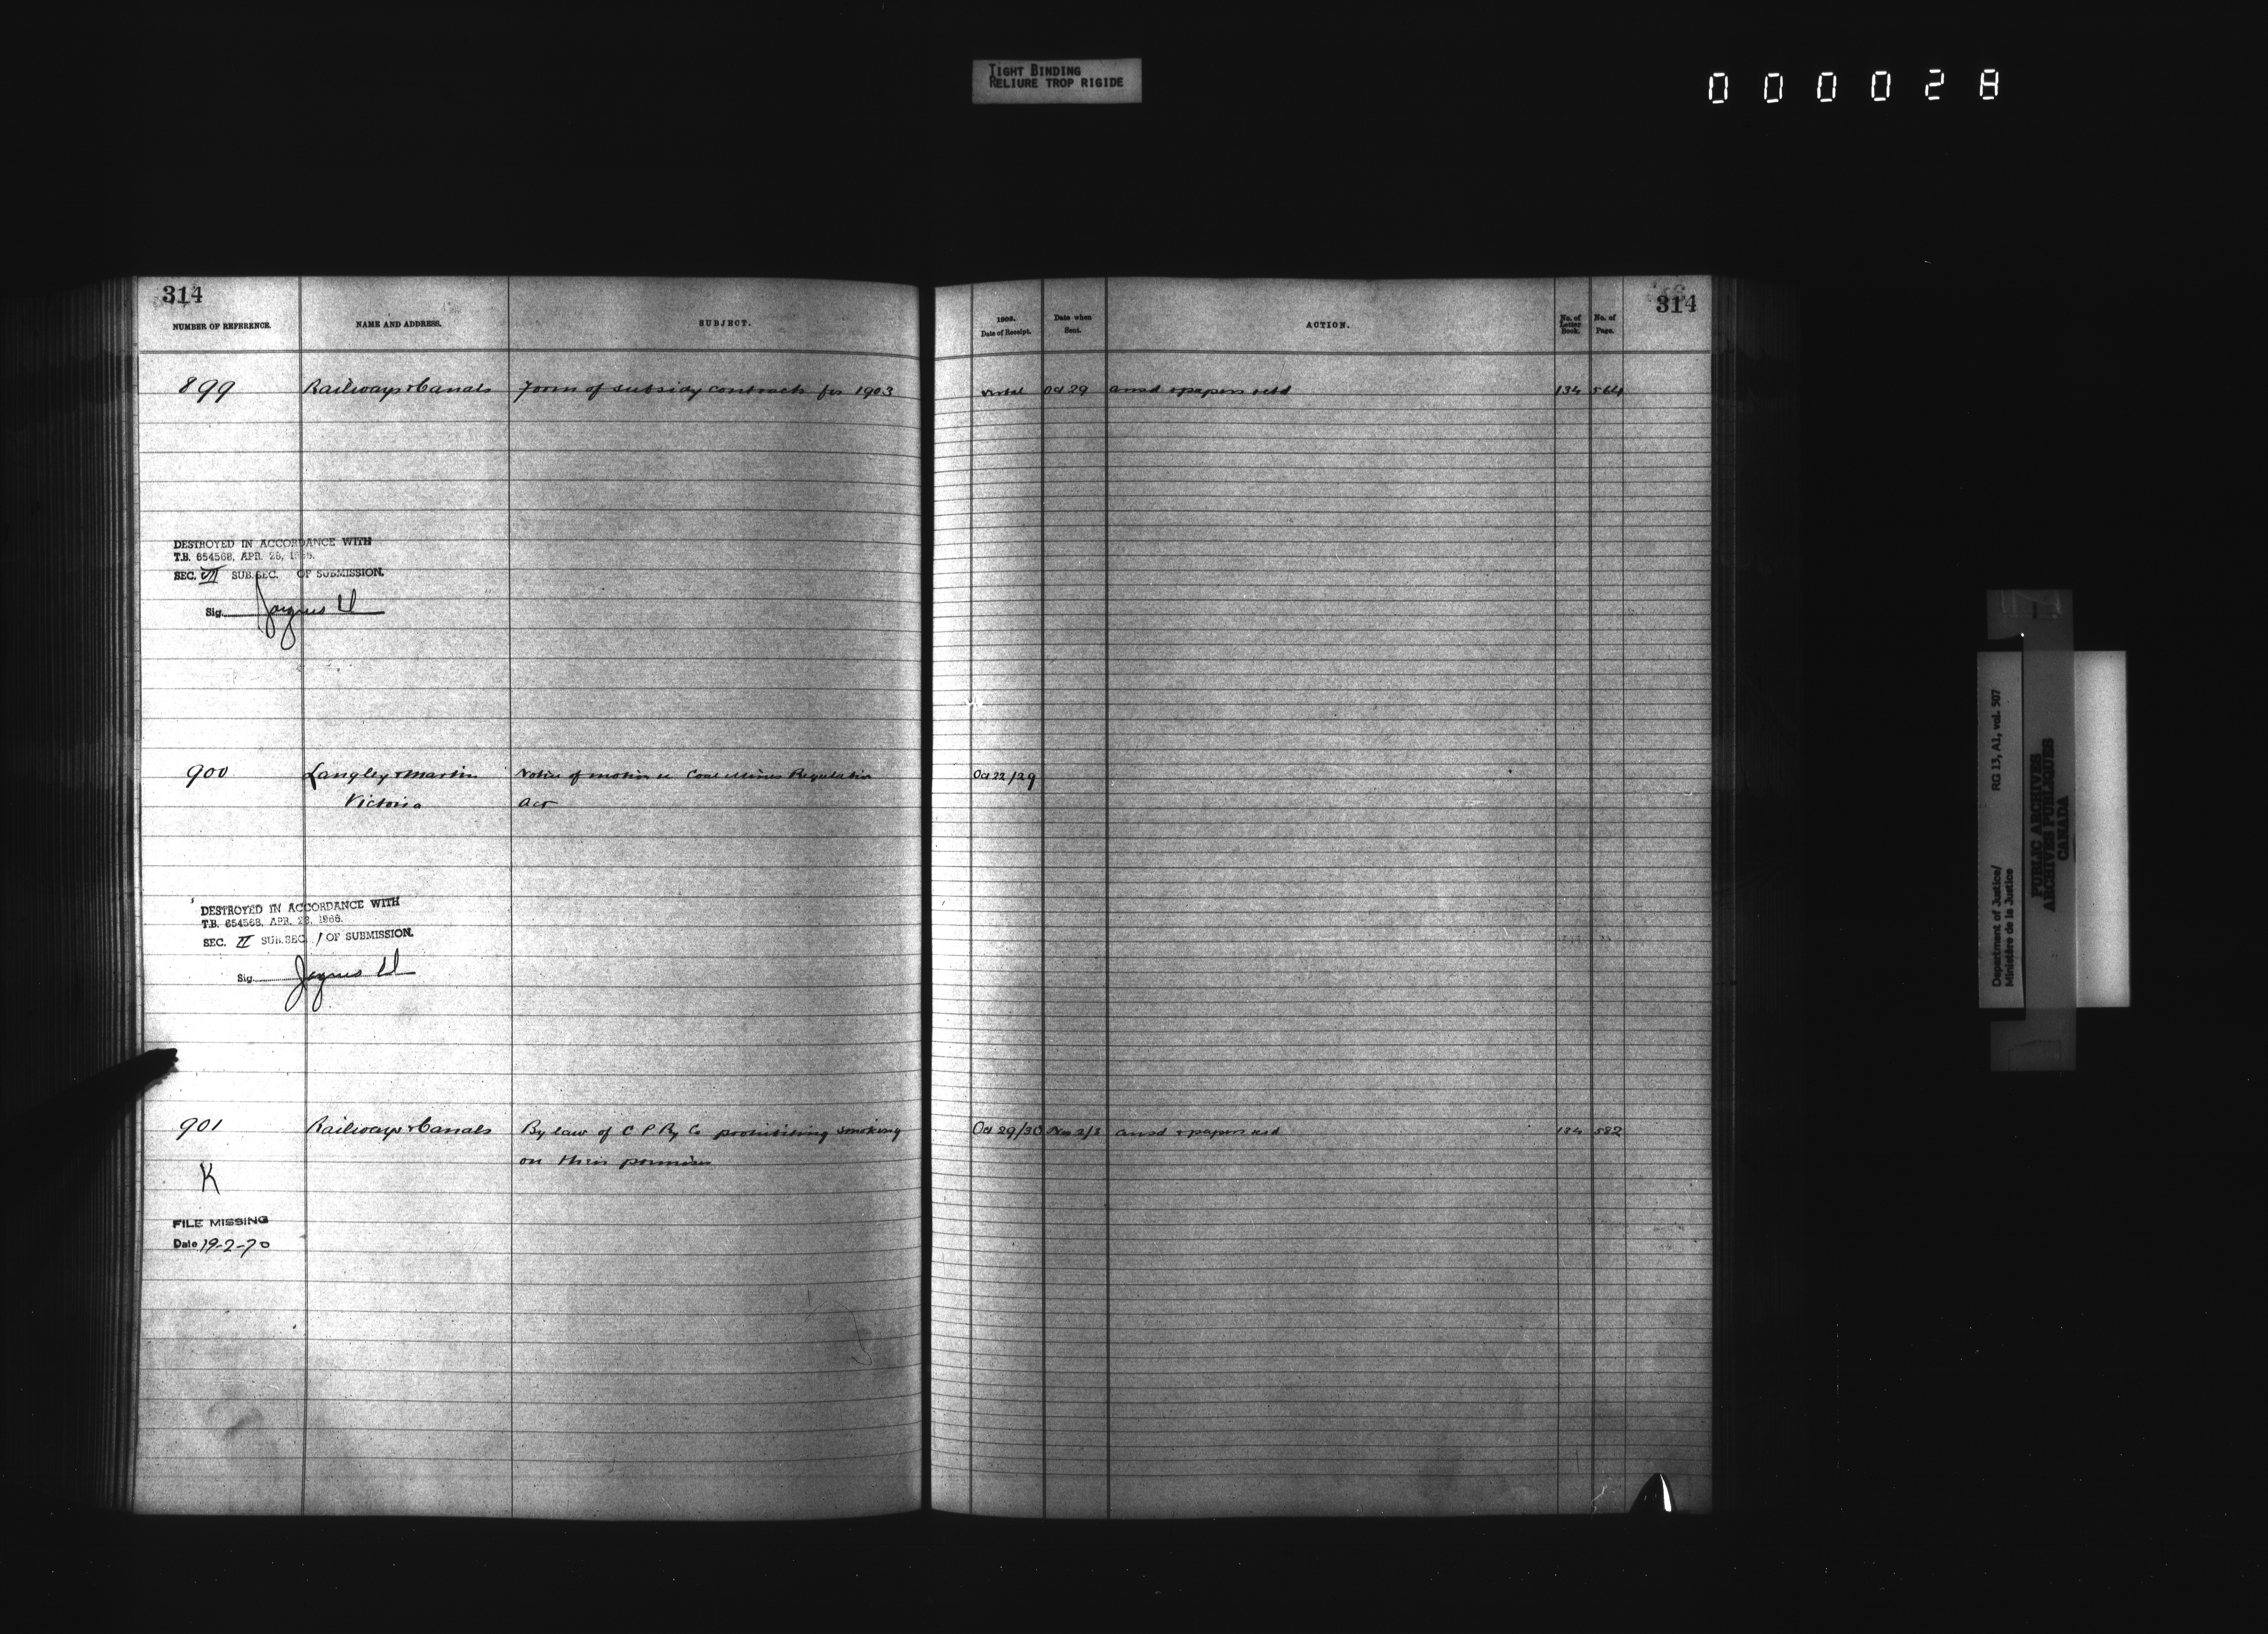 TIGHT BINDING
RELIURE TROP RIGIDE
000028
314
NUMBER OF REFERENCE. NAME AND ADDRESS. SUBJECT.
899 Railways & Canals Form of subsidy contracts for 1903
DESTROYED IN ACCORDANCE WITH
T.B. 654568, APR. 28, 1966.
SEC. VII SUB.SEC. OF SUBMISSION.
Sig.
900 Langley & Martin Notice of motion re Coal Mines Regulation
Victoria Act
DESTROYED IN ACCORDANCE WITH
T.B. 654568, APR. 28, 1966.
SEC. II SUB.SEC. 1 OF SUBMISSION.
Sig.
901 Railways & Canals By law of C P Ry Co prohibiting smoking
on their premises
K
FILE MISSING
Date 19-2-70
314
1903.
Date of Receipt. Date when Sent. ACTION. No. of Letter Book. No. of Page.
verbal Oct 29 ansd & papers retd 134 564
Oct 22/29
Oct 29/30 Nov 2/3 ansd & papers retd 134 582
Department of Justice/ RG 13, A1, vol. 507
Ministère de la Justice
PUBLIC ARCHIVES
ARCHIVES PUBLIQUES
CANADA